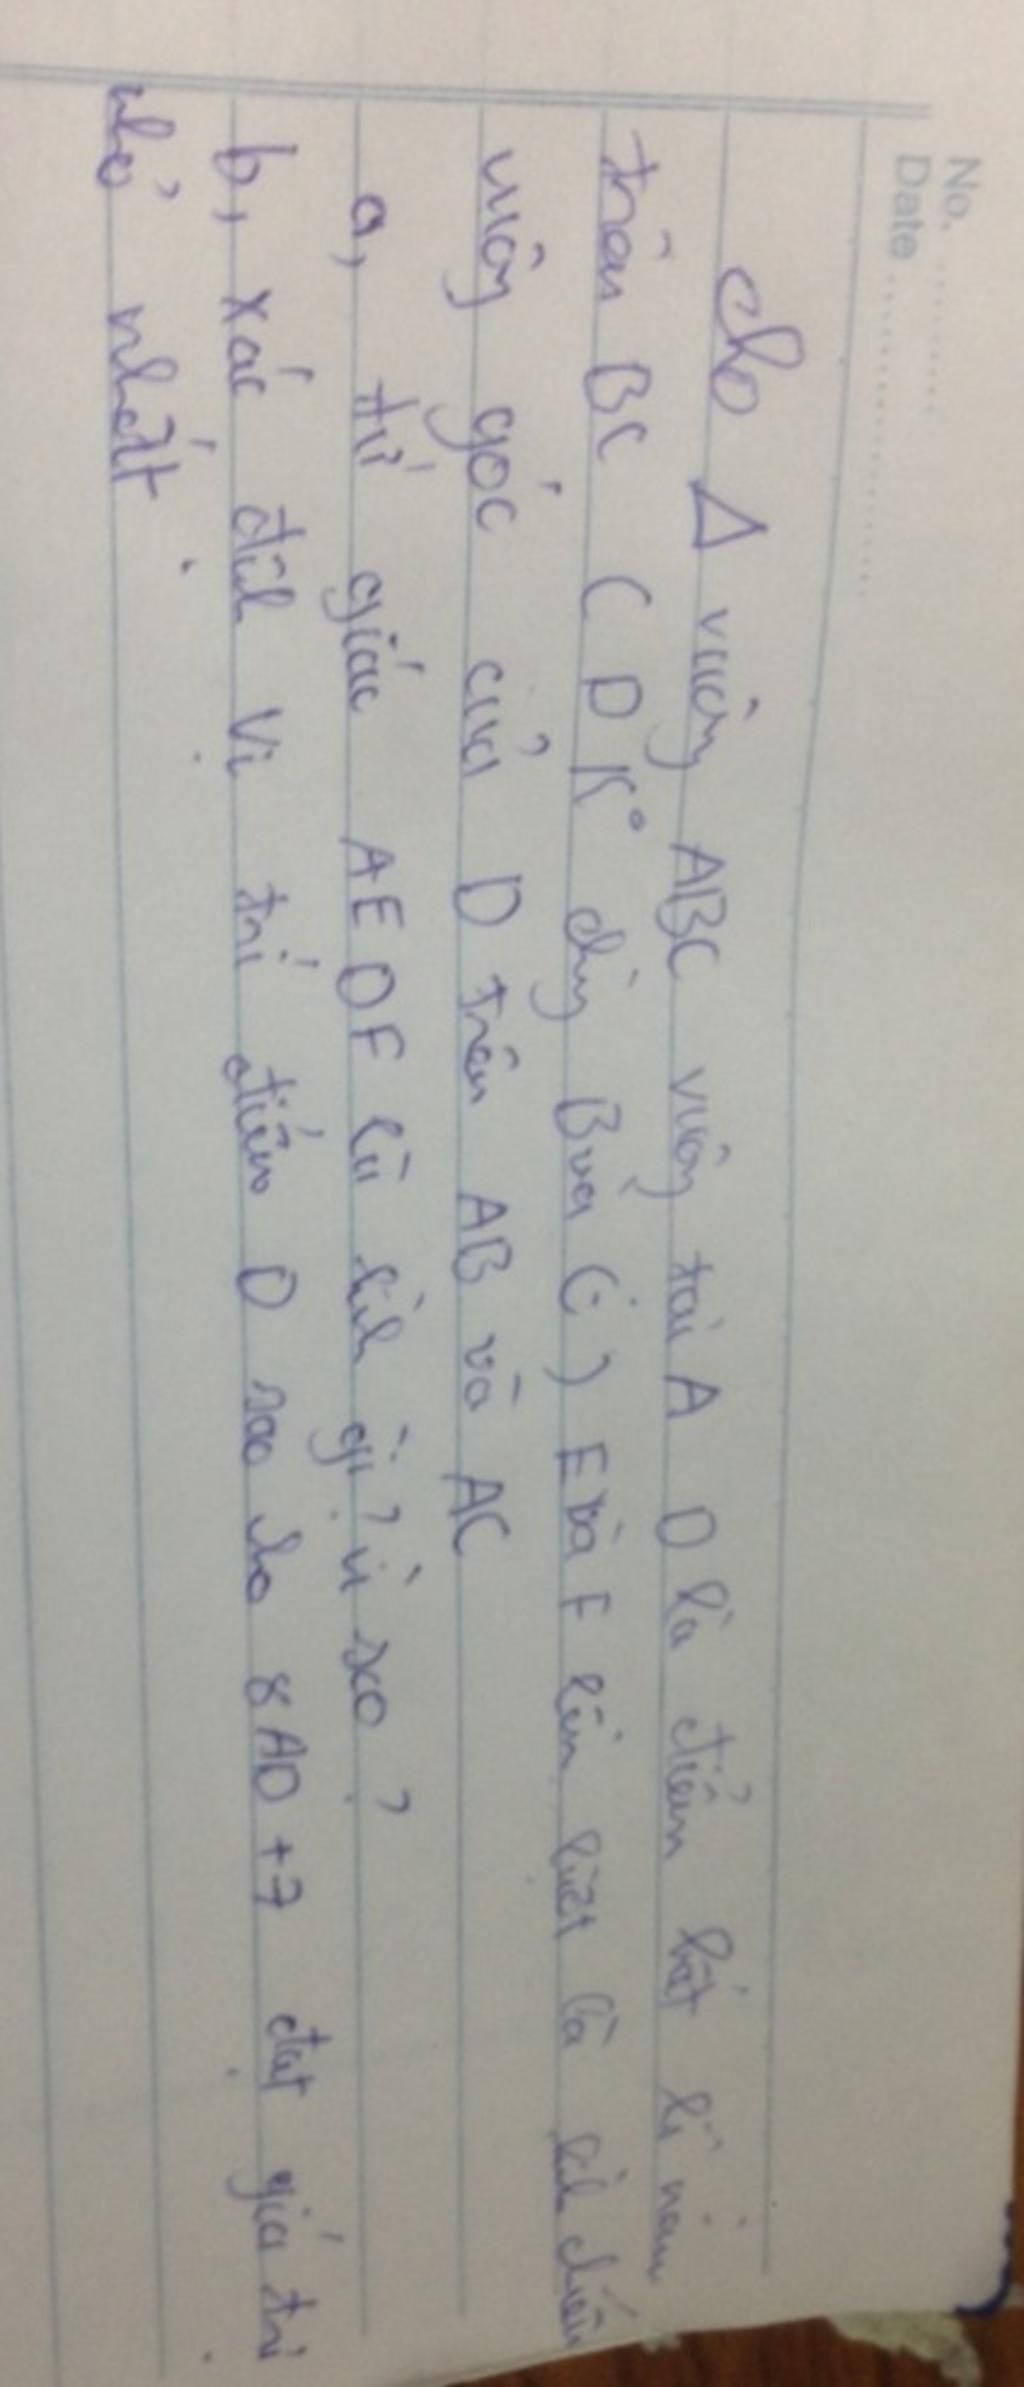 No. ........
Date ..................
cho Δ vuông ABC vuông tại A D là điểm bất kì nằm
trên BC ( D K° chùng B và C ) E và F lần lượt là hình chiếu
vuông góc của D trên AB và AC
a, tứ giác AEDF là hình gì? vì sao?
b, xác định vị trí điểm D sao cho 8AD + 7 đạt giá trị
nhỏ nhất